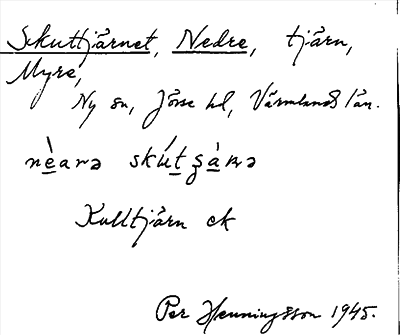 Skuttjärnet, Nedre, tjärn,
Myre,
Ny sn, Jösse hd, Värmlands län.
nèarə skútʂànə
Kulltjärn ek
Per Henningsson 1945.